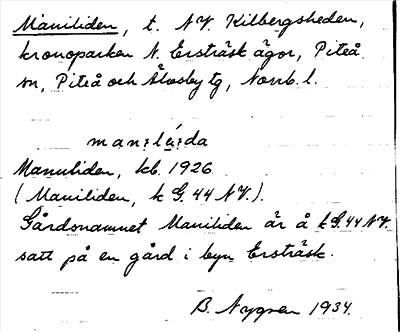 Maniliden, t. N.V. Kilbergsheden,
kronoparken N. Ersträsk ägor, Piteå
sn, Piteå och Älvsby tg, Norrb. l.
Manuliden, kb. 1926
(Maniliden, k G. 44 N.V.).
Gårdsnamnet Maniliden är å k G. 44 N.V.
satt på en gård i byn Ersträsk.
B. Nygren 1934.